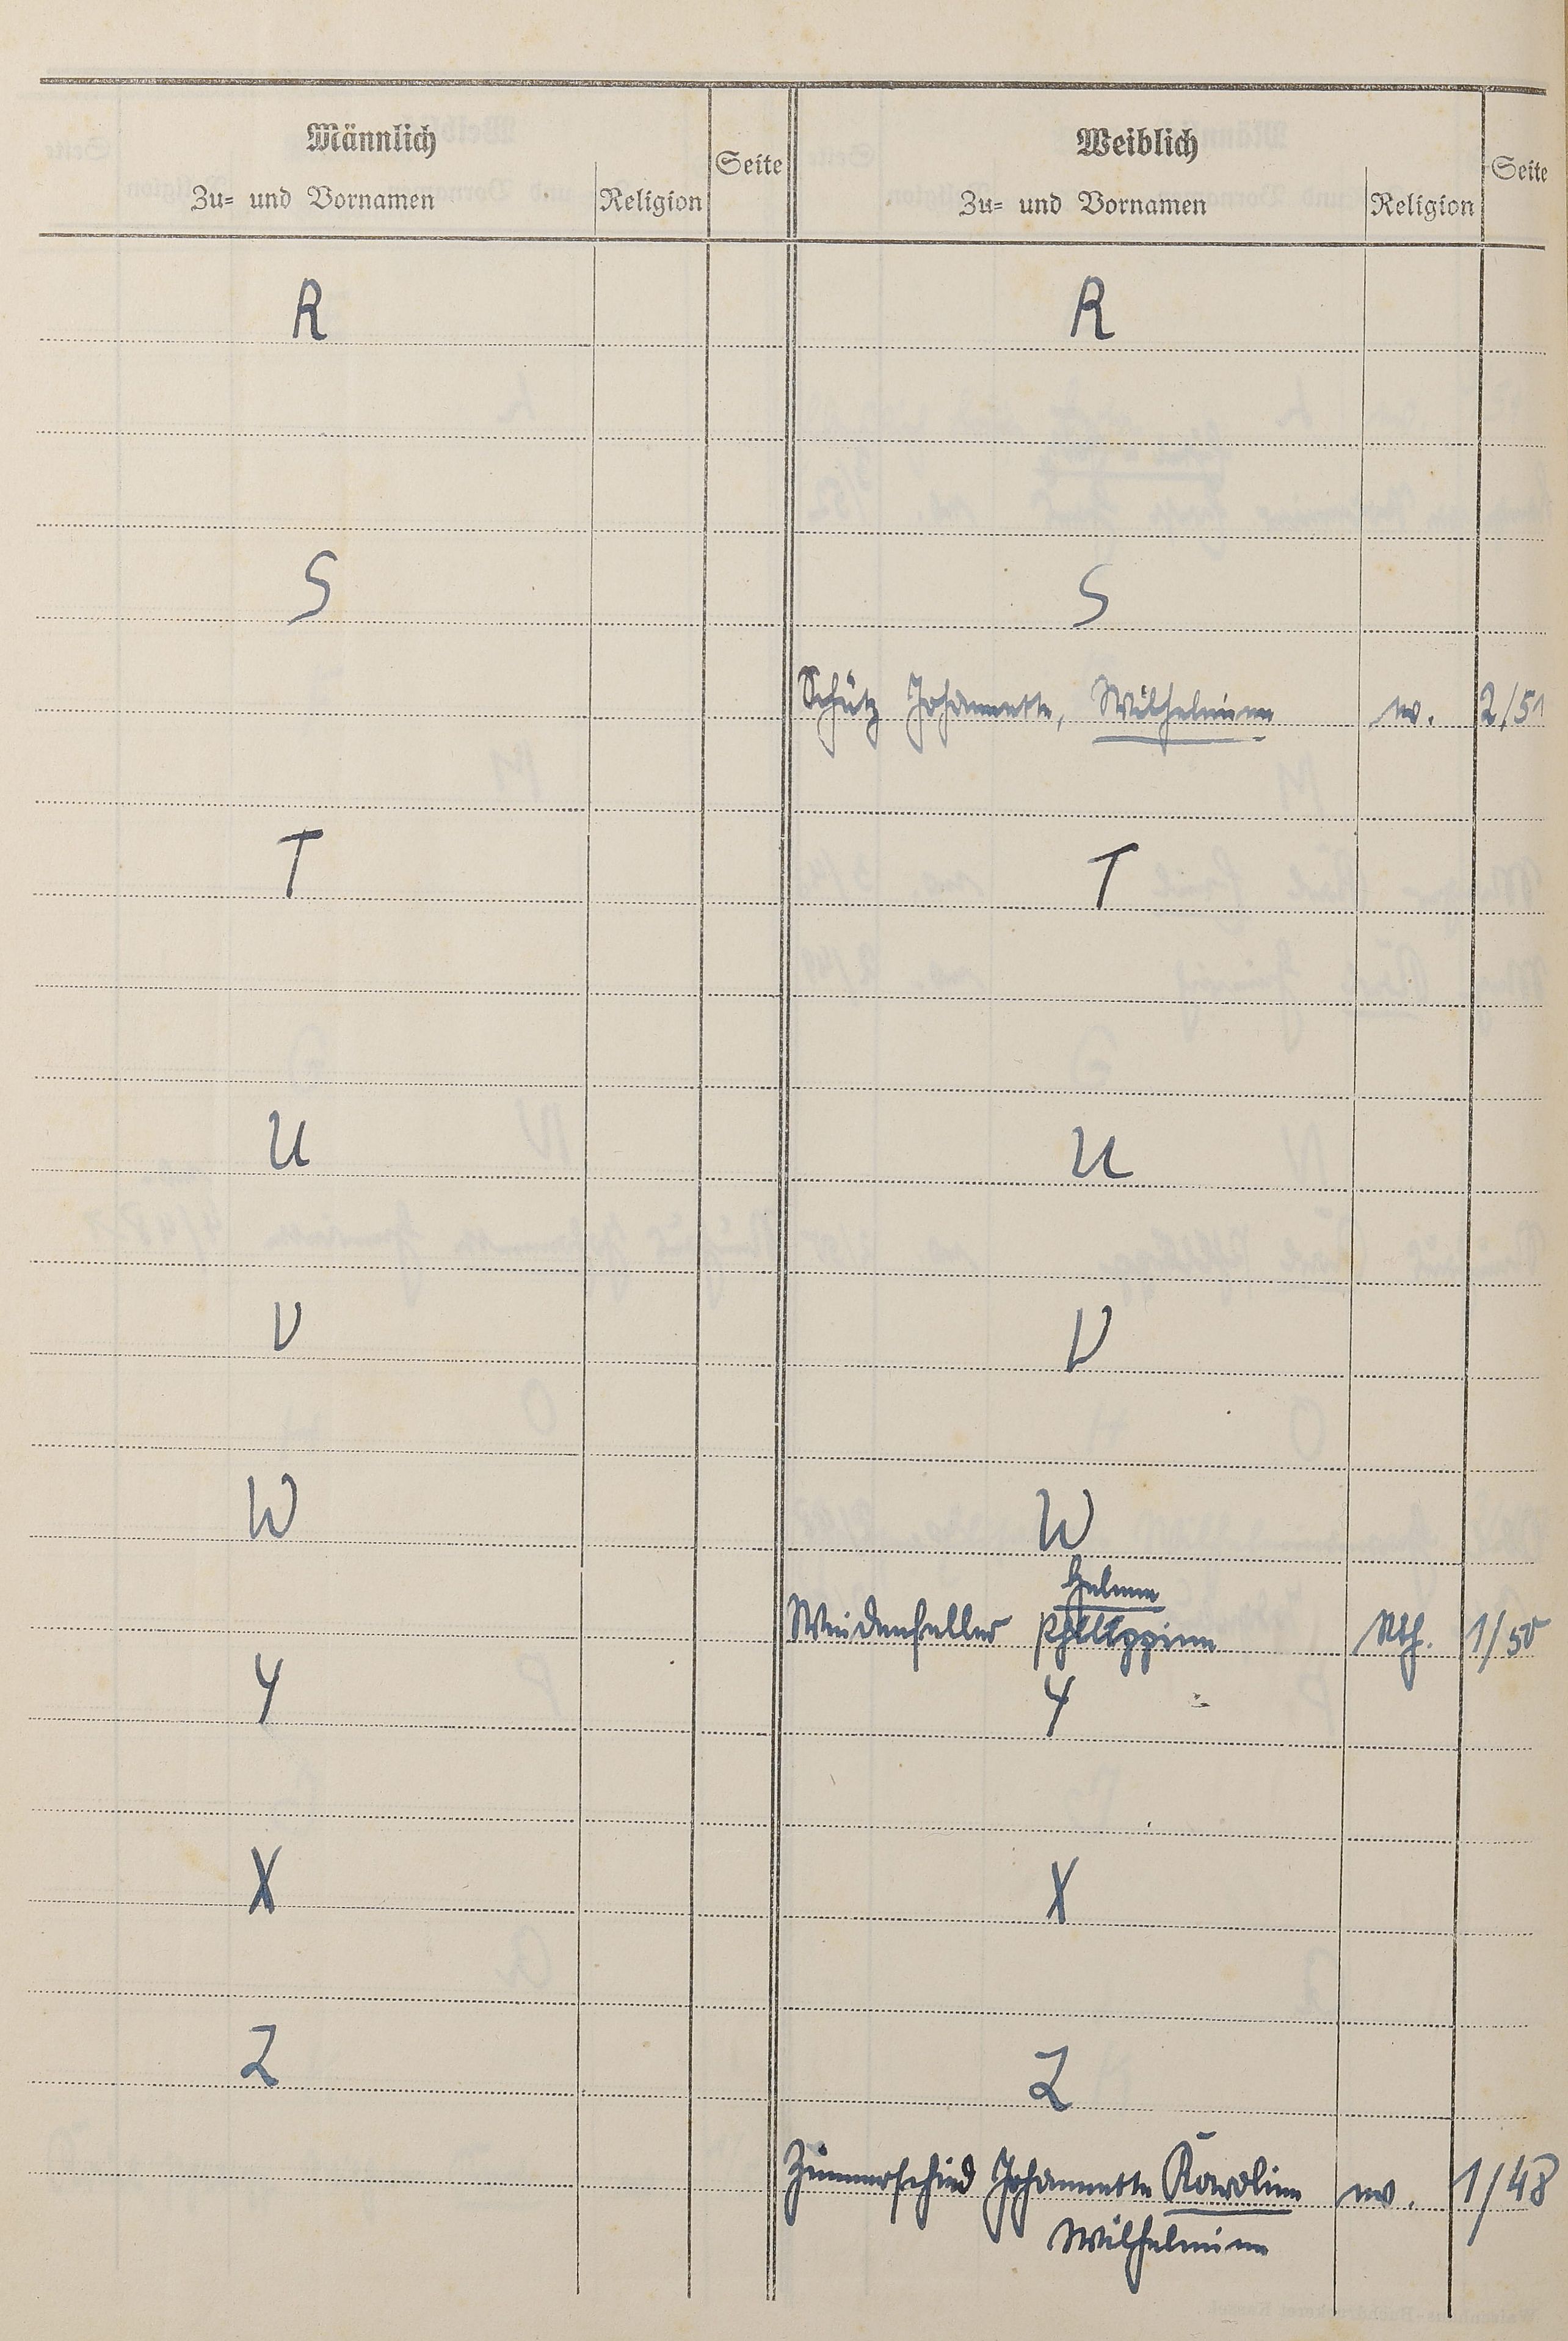 Männlich
Zu= und Vornamen
Religion
Seite
Weiblich
Zu= und Vornamen
Religion
Seite
R R
S S
Schütz Johannette, Wilhelmine ev. 2/51
T T
U U
V V
W W
Helene
Weidenfeller Philippine kth. 1/50
Y Y
X X
Z Z
Zimmerschied Johannette Karoline ev. 1/48
Wilhelmine